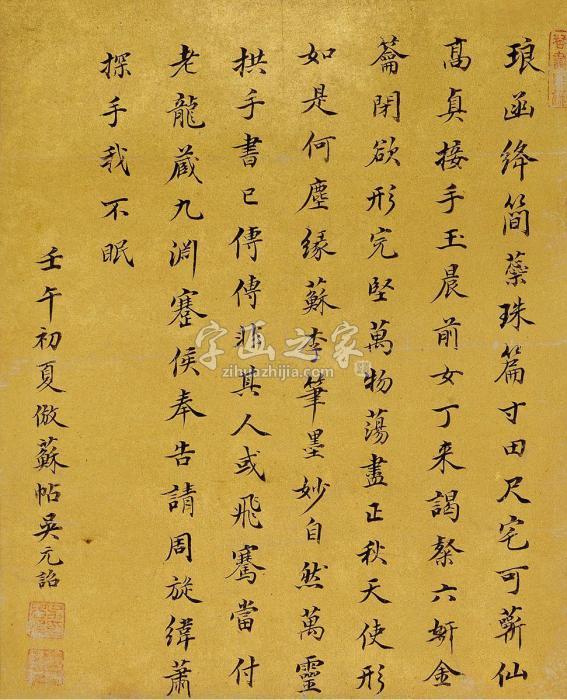 琅函絳簡蘂珠篇寸田尺宅可蘄仙
高真接手玉晨前女丁来謁粲六妍金
籥閉欲形完堅萬物蕩盡正秋天使形
如是何塵緣蘇李筆墨妙自然萬靈
拱手書已傳傳非其人或飛騫當付
老龍藏九淵蹇侯奉告請周旋緯蕭
探手我不眠
壬午初夏倣蘇帖吳元詒
字画之家
zihuazhijia.com